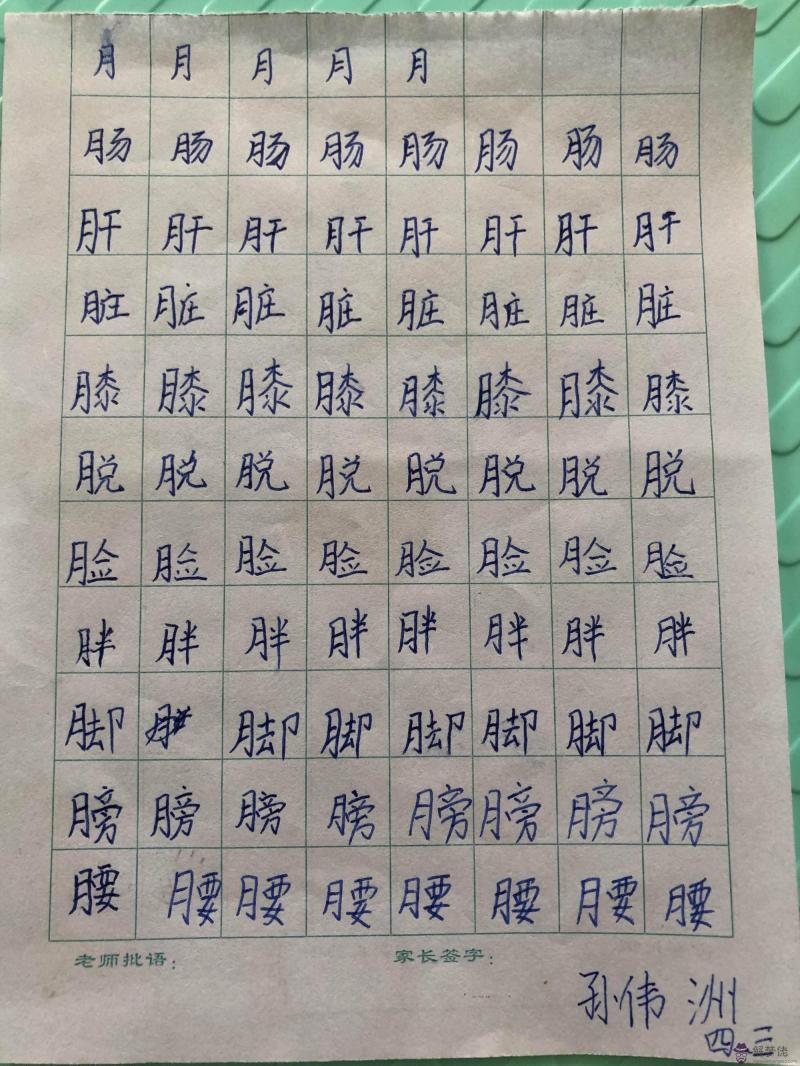 月 月 月 月 月
肠 肠 肠 肠 肠 肠 肠 肠
肝 肝 肝 肝 肝 肝 肝 肝
脏 脏 脏 脏 脏 脏 脏 脏
膝 膝 膝 膝 膝 膝 膝 膝
脱 脱 脱 脱 脱 脱 脱 脱
脸 脸 脸 脸 脸 脸 脸 脸
胖 胖 胖 胖 胖 胖 胖 胖
脚 脚 脚 脚 脚 脚 脚
膀 膀 膀 膀 膀 膀 膀 膀
腰 腰 腰 腰 腰 腰 腰 腰
老师批语： 家长签字：
孙伟洲
四.三
解梦佬